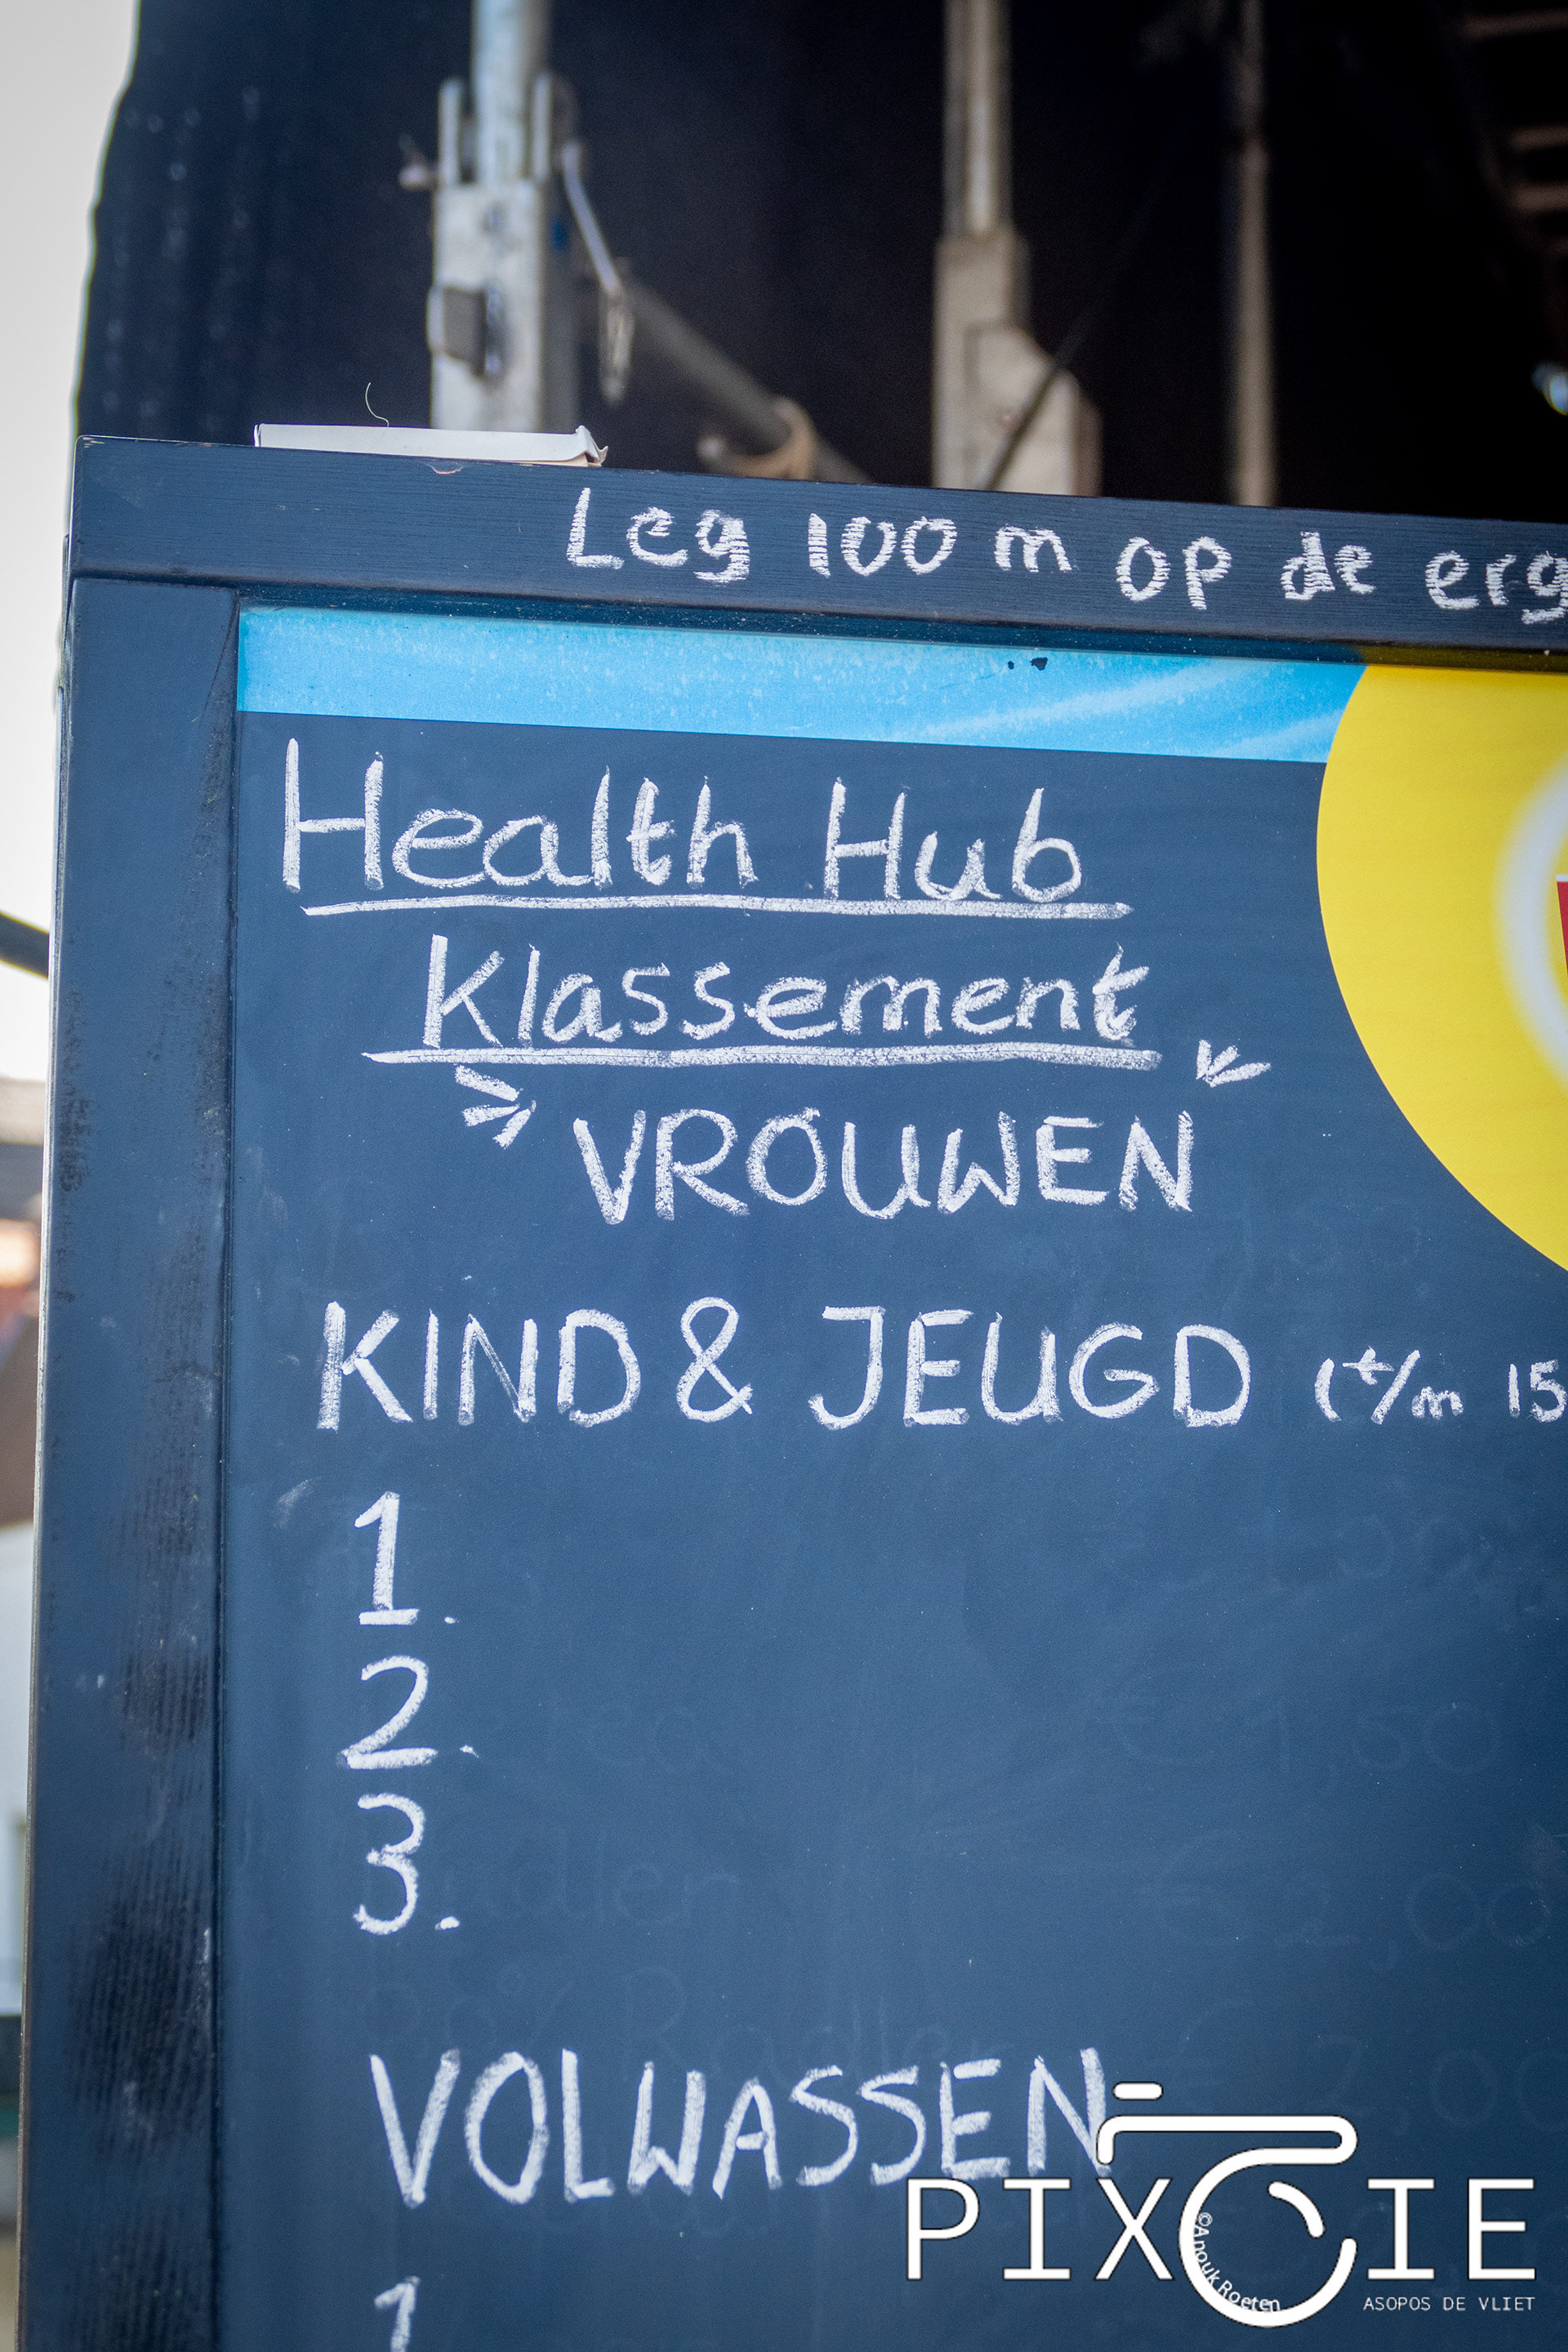 Leg 100 m op de erg
Health Hub
Klassement
VROUWEN
KIND & JEUGD (t/m 15
1.
2.
3.
VOLWASSEN
1
PIXOIE
©Anouk Roeten
ASOPOS DE VLIET